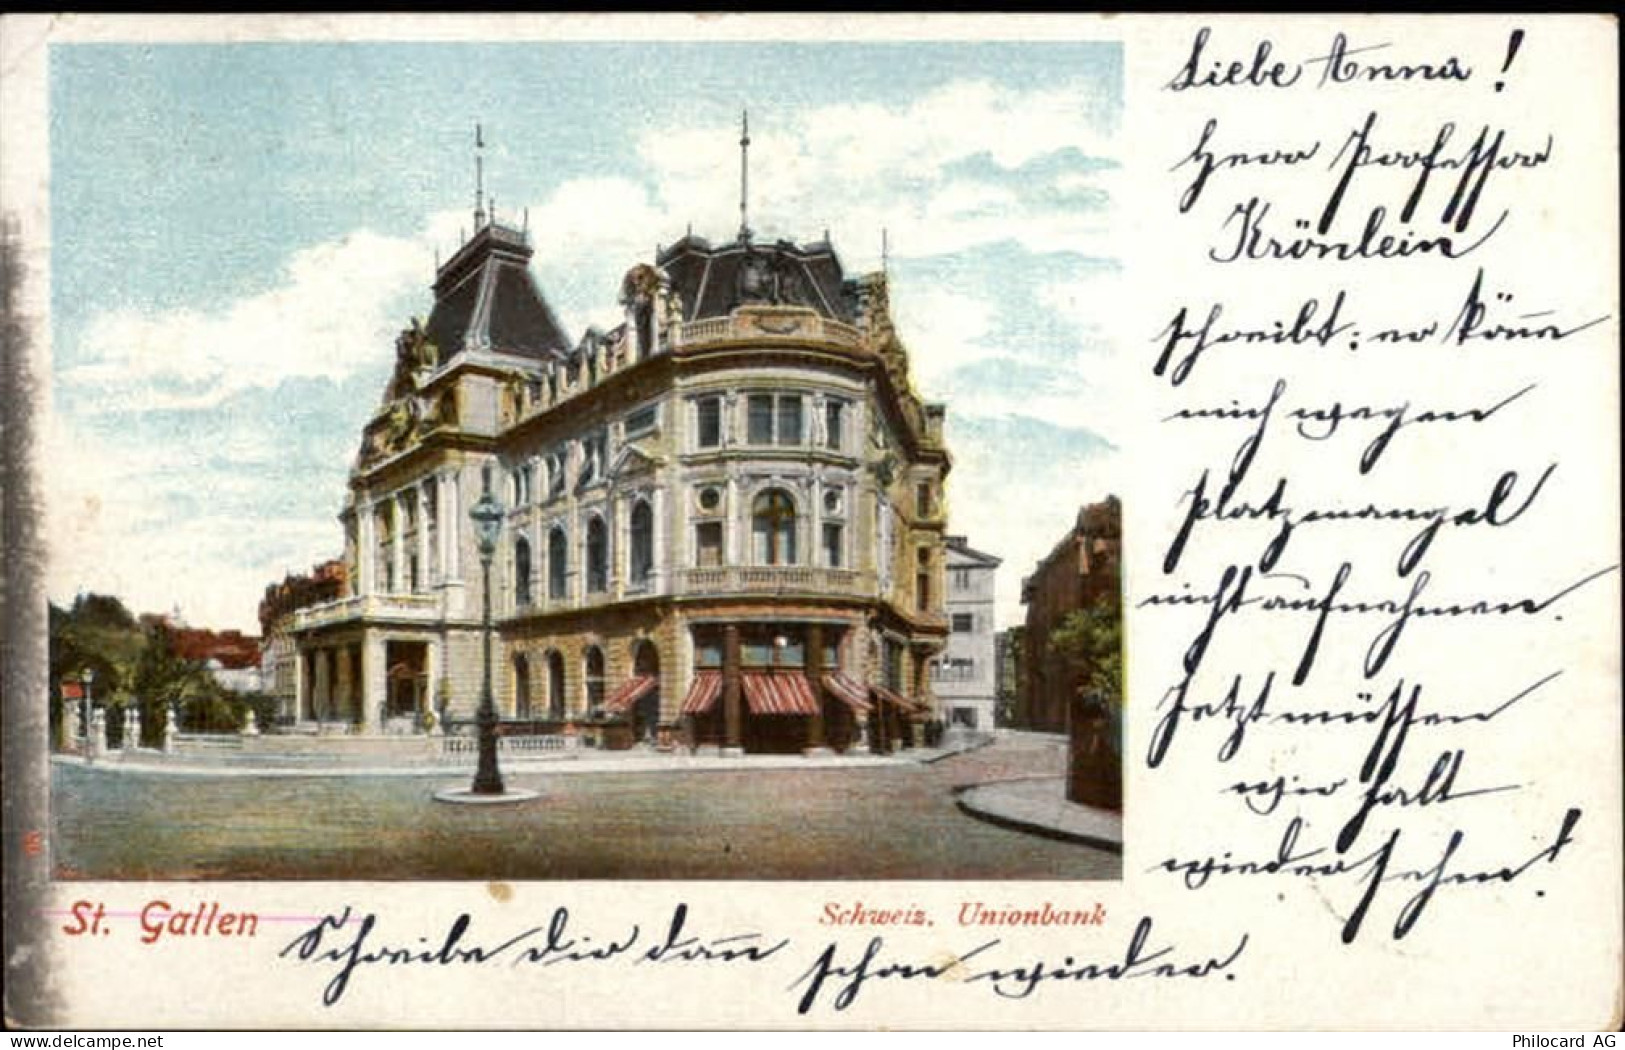 Liebe Anna!
Herr Professor
Krönlein
schreibt: er kön̄e
mich wegen
Platzmangel
nicht aufnehmen.
Jetzt müssen
wir halt
wieder sehen!
St. Gallen
Schweiz. Unionbank
Schreibe dir dan̄
schon wieder.
St. Gallen - Schweiz. Unionbank
Philocard AG